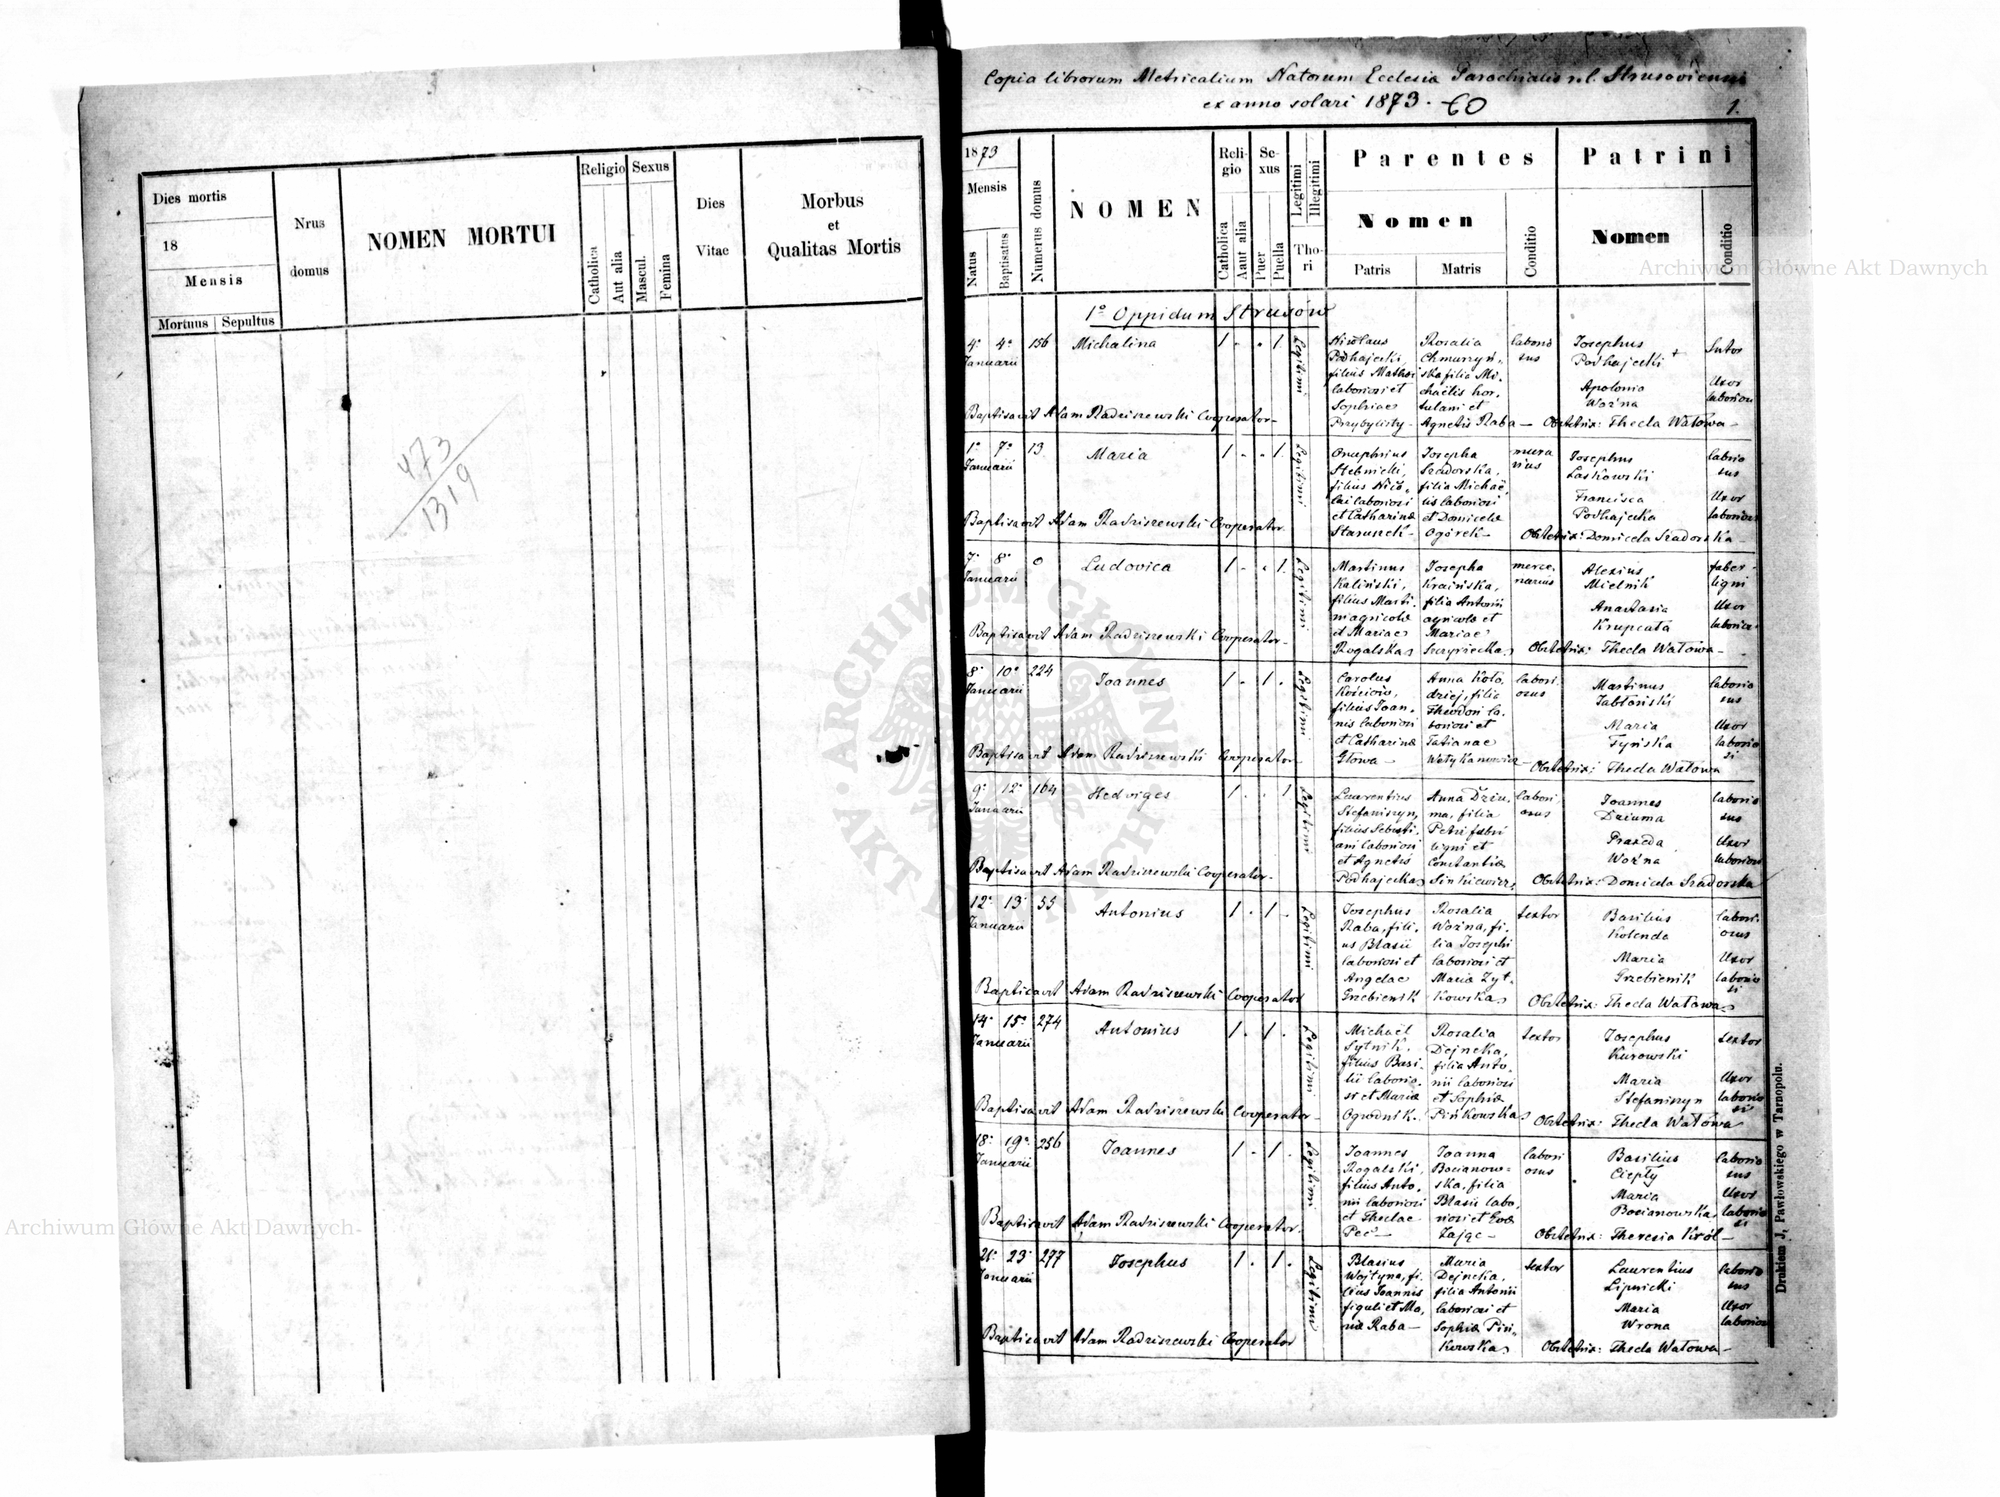 Dies mortis
18
Mensis
Mortuus
Sepultus
Nrus
domus
NOMEN MORTUI
Religio
Catholica
Aut alia
Sexus
Mascul.
Femina
Dies
Vitae
Morbus
et
Qualitas Mortis
473
1319
Copia librorum Metricalium Natorum Ecclesia Parochialis r.l. Strusoviensi
ex anno solari 1873.
1.
1873
Mensis
Natus
Baptisatus
Numerus domus
NOMEN
Reli-
gio
Catholica
Aaut alia
Se-
xus
Puer
Puella
Legitimi
Illegitimi
Tho-
ri
Parentes
Nomen
Patris
Matris
Conditio
Patrini
Nomen
Conditio
1º Oppidum Strusów
4. 4. 156
Januarii
Michalina
1 . . 1
Legitimi
Nicolaus
Podhajecki
filius Mathaei
laboriosi et
Sophiae
Przybylsty -
Rosalia
Chmurzyń,
ska filia Mi,
chaëlis hor,
tulani et
Agnetis Raba -
laborio
sus
Josephus
Podhajecki +
Apolonia
Woźna
Sutor
Uxor
laboriosi
Baptisavit Adam Radziszewski Cooperator -
Obstetrix: Thecla Watowa -
1. 7. 13
Januarii
Maria
1 . . 1
Legitimi
Onuphrius
Stebnicki,
filius Nico,
lai laboriosi
et Catharinæ
Staruszek -
Josepha
Szadorska,
filia Michaë,
lis laboriosi
et Domicelæ
Ogórek -
mura
rius
Josephus
Laskowski
Francisca
Podhajecka
laborio
sus
Uxor
laboriosi
Baptisavit Adam Radziszewski Cooperator
Obstetrix: Domicela Szadorska -
7. 8. 0
Januarii
Ludovica
1 . . 1.
Legitimi
Martinus
Kaliński,
filius Marti,
ni agricolæ
et Mariae
Rogalska
Josepha
Kraińska,
filia Antonii
agricolæ et
Mariae
merce,
narius
Alexius
Mielnik
Anastasia
Krupcata
faber
ligni
Uxor
Baptisavit Adam Radziszewski Cooperator -
Obstetrix: Thecla Watowa -
8. 10. 224
Januarii
Joannes
1 . 1 .
Legitimi
Carolus
Kościow,
filius Joan,
nis laboriosi
et Catharinæ
Głowa -
Anna Koło,
dziej, filia
Theodori la,
boriosi et
Tatianae
labori
osus
Martinus
Jabłoński
Maria
Tyńska
laborio
sus
Uxor
laborio
si
Baptisavit Adam Radziszewski Cooperator -
Obstetrix: Thecla Watowa
9. 12. 164
Januarii
Hedviges
1 . . 1
Legitimi
Laurentius
Stefaniszyn,
filius Sebasti,
ani laboriosi
et Agnetis
Podhajecka
Anna Dziu,
ma, filia
Petri fabri
ligni et
Constantiæ
Sinkiewicz
labori
osus
Joannes
Dziuma
Praxeda
Woźna
laborio
sus
Uxor
laboriosi
Baptisavit Adam Radziszewski Cooperator -
Obstetrix: Domicela Szadorska
12. 13. 55
Januarii
Antonius
1 . 1 .
Legitimi
Josephus
Raba, fili,
us Blasii
laboriosi et
Angelae
Grzebienik
Rosalia
Woźna, fi,
lia Josephi
laboriosi et
Maria Zyt,
kowska
textor
Basilius
Kolenda
Maria
Grzebienik
labori,
osus
Uxor
laborio
si
Baptisavit Adam Radziszewski Cooperator
Obstetrix: Thecla Watowa
14. 15. 274
Januarii
Antonius
1 . 1 .
Legitimi
Michaël
Sytnik,
filius Basi,
lii laborio,
si et Mariæ
Ogrodnik -
Rosalia
Dejneka,
filia Anto,
nii laboriosi
et Sophiæ
Pińkowska
textor
Josephus
Kurowski
Maria
Stefaniszyn
textor
Uxor
laborio
si
Baptisavit Adam Radziszewski Cooperator -
Obstetrix: Thecla Watowa
18. 19. 256
Januarii
Joannes
1 . 1 .
Legitimi
Joannes
Rogalski,
filius Anto,
nii laboriosi
et Theclae
Peć -
Joanna
Bocianow=
ska, filia
Blasii labo,
riosi et Evæ
Zając -
labori
osus
Basilius
Ciepły
Maria
Bocianowska
laborio
sus
Uxor
laborio
si
Baptisavit Adam Radziszewski Cooperator.
Obstetrix: Theresia Król -
21. 23. 277
Januarii
Josephus
1 . 1 .
Legitimi
Blasius
Wojtyna, fi,
lius Joannis
figuli et Ma,
riæ Raba -
Maria
Dejneka,
filia Antonii
laboriosi et
Sophiæ Piń,
kowska
textor
Laurentius
Lipnicki
Maria
Wrona
laborio
sus
Uxor
laboriosi
Baptisavit Adam Radziszewski Cooperator
Obstetrix: Thecla Watowa -
Drukiem J. Pawłowskiego w Tarnopolu.
Archiwum Główne Akt Dawnych
Archiwum Główne Akt Dawnych
ARCHIWUM GŁÓWNE AKT DAWNYCH